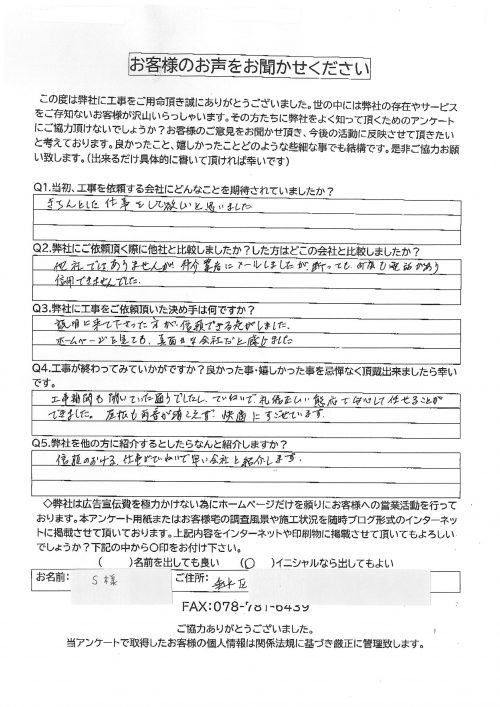 お客様のお声をお聞かせください
この度は弊社に工事をご用命頂き誠にありがとうございました。世の中には弊社の存在やサービス
をご存知ないお客様が沢山いらっしゃいます。その方たちに弊社をよく知って頂くためのアンケート
にご協力頂けないでしょうか?お客様のご意見をお聞かせ頂き、今後の活動に反映させて頂きたい
と考えております。良かったこと、嬉しかったことどのような些細な事でも結構です。是非ご協力お願
い致します。(出来るだけ具体的に書いて頂ければ幸いです)
Q1.当初、工事を依頼する会社にどんなことを期待されていましたか?
きちんとした仕事をして欲しいと思いました
Q2.弊社にご依頼頂く際に他社と比較しましたか?した方はどこの会社と比較しましたか?
他社ではありませんが、仲介業者にメールしましたが断っても何度も電話があり
信用できませんでした。
Q3.弊社に工事をご依頼頂いた決め手は何ですか?
説明に来て下さった方が、信頼できる気がしました。
ホームページを見ても、真面目な会社だと感じました
Q4.工事が終わってみていかがですか?良かった事・嬉しかった事を忌憚なく頂戴出来ましたら幸い
です。
工事期間も聞いていた通りでしたし、ていねいで礼儀正しい態度で安心して任せることが
できました。屋根も雨音が聞こえず、快適にすごせています。
Q5.弊社を他の方に紹介するとしたらなんと紹介しますか?
信頼のおける、仕事がていねいで早い会社と紹介します。
◇弊社は広告宣伝費を極力かけない為にホームページだけを頼りにお客様への営業活動を行って
おります。本アンケート用紙またはお客様宅の調査風景や施工状況を随時ブログ形式のインターネッ
トに掲載させて頂いております。上記内容をインターネットや印刷物に掲載させて頂いてもよろしい
でしょうか?下記の中から〇印をお付け下さい。
( )名前を出しても良い (〇)イニシャルなら出してもよい
お名前: S様 ご住所: 区
FAX:078-781-6439
ご協力ありがとうございました。
当アンケートで取得したお客様の個人情報は関係法規に基づき厳正に管理致します。